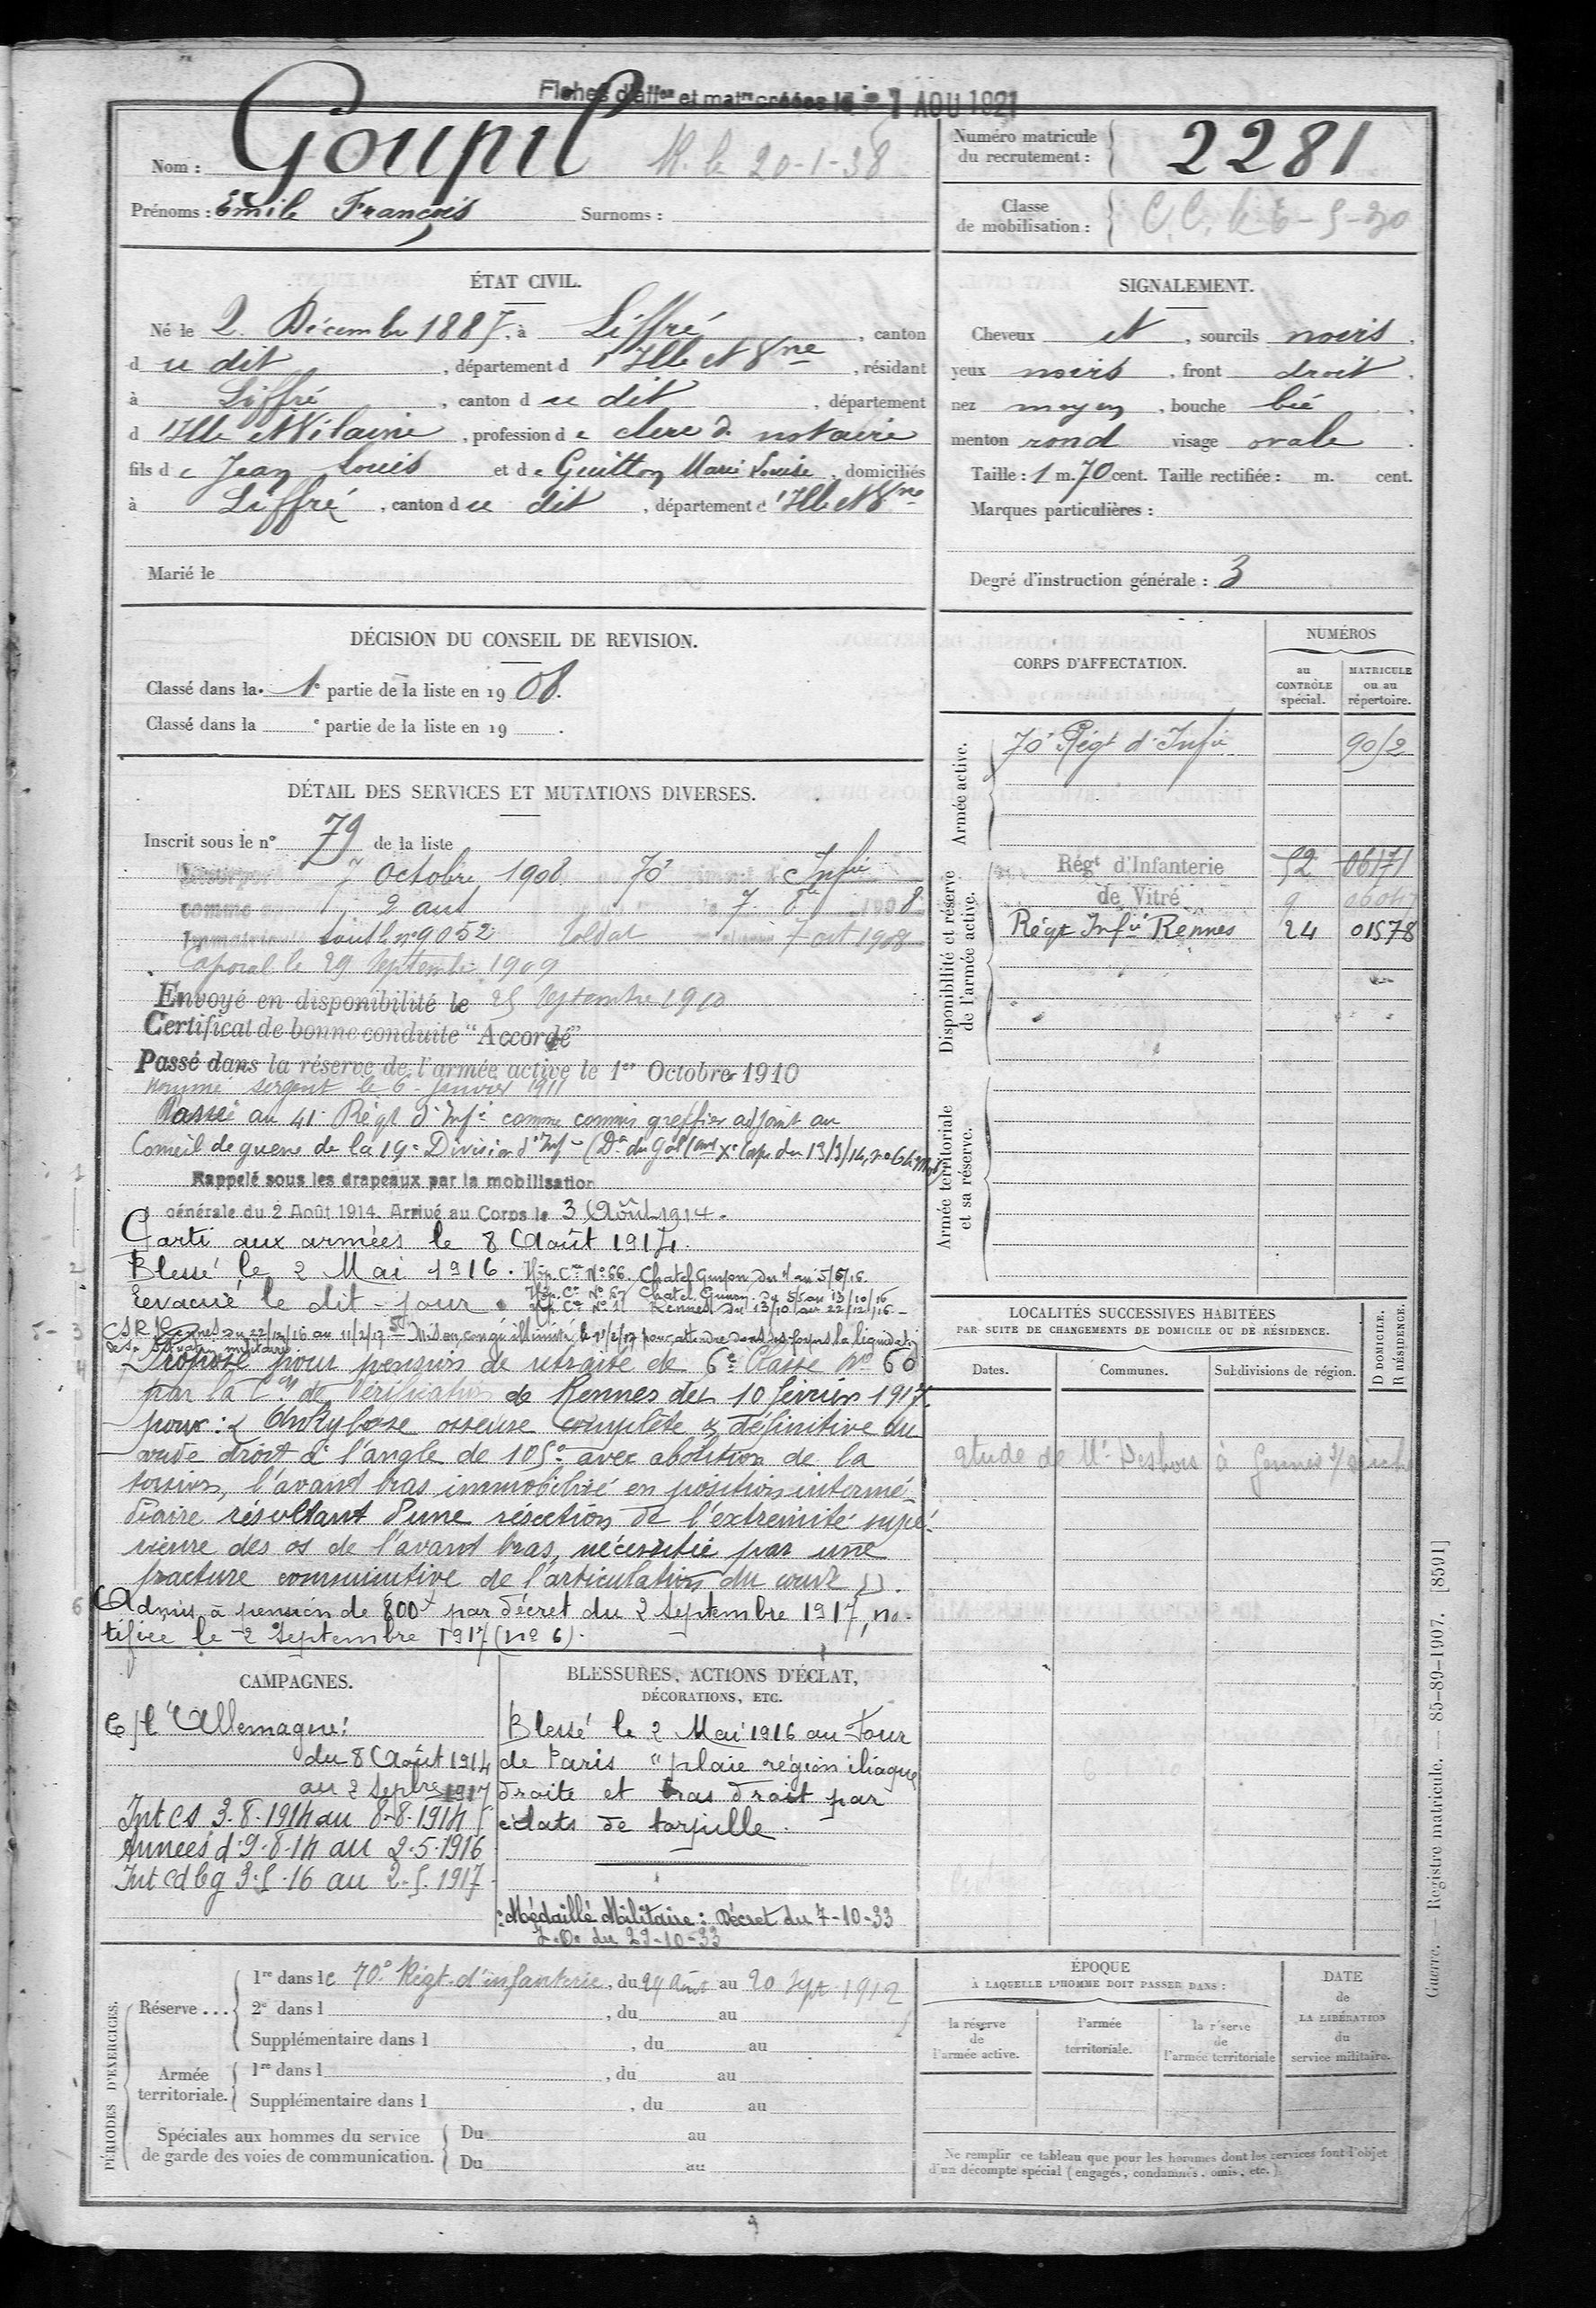 Fiches d'aff^on et mat^re créées le - 1 AOU 1921
Nom : Goupil
20-1-38
Numéro matricule du recrutement : 2281
Prénoms : Emile François Surnoms :
Classe de mobilisation :
ÉTAT CIVIL.
Né le 2 Décembre 1887, à Liffré, canton
d u dit, département d 'Ille et Vne, résidant
à Liffré, canton d u dit, département
d 'Ille et Vilaine, profession d e clerc de notaire
fils d e Jean Louis et d e Guitton Marie Louise, domiciliés
à Liffré, canton d u dit, département d 'Ille et Vne
Marié le
SIGNALEMENT.
Cheveux et, sourcils noirs,
yeux noirs, front droit,
nez moyen, bouche
menton rond visage ovale.
Taille : 1 m. 70 cent. Taille rectifiée : m. cent.
Marques particulières :
Degré d'instruction générale : 3
DÉCISION DU CONSEIL DE REVISION.
Classé dans la 1e partie de la liste en 1908.
Classé dans la e partie de la liste en 19 .
DÉTAIL DES SERVICES ET MUTATIONS DIVERSES.
Inscrit sous le n° 79 de la liste
Incorporé 7 octobre 1908 70e Infie
comme 2 ans 7 8bre 1908
Immatriculé sous le n° 9052 Soldat 7 oct 1908
Caporal le 29 Septembre 1909
Envoyé en disponibilité le 25 Septembre 1910
Certificat de bonne conduite "Accordé"
Passé dans la réserve de l'armée active le 1er Octobre 1910
nommé sergent le 6 janvier 1911
Passé au 41e Régt d'Infie comme commis greffier adjoint au
Conseil de guerre de la 19e Division d'Inf
1
Rappelé sous les drapeaux par la mobilisation
générale du 2 Août 1914. Arrivé au Corps le 3 Août 1914.
Parti aux armées le 8 Août 1914.
2
Blessé le 2 Mai 1916. Hôp. Cre N° 66. Chatel Guyon
Evacué le dit-jour. Hôp. Cre N° 67 Chatel Guyon
Rennes du 13/10 au 22/12/16
3
Rennes du 22/12/16 au 11/2/17
4
Proposé pour pension de retraite de 6e Classe No 60
par la Con de Vérification de Rennes du 10 février 1917
pour : « Ankylose osseuse complète & définitive du
coude droit à l'angle de 105° avec abolition de la
torsion, l'avant bras immobilisé en position intermé-
diaire résultant d'une résection de l'extrémité supé-
rieure des os de l'avant bras, nécessitée par une
fracture comminutive de l'articulation du coude ».
6
Admis à pension de 800f par décret du 2 Septembre 1917, no-
tifiée le 2 Septembre 1917 (no 6).
CORPS D'AFFECTATION.
NUMÉROS
au CONTRÔLE spécial.
MATRICULE ou au répertoire.
Armée active.
70e Régt d'Infie 9052
Disponibilité et réserve de l'armée active.
Régt d'Infanterie 52 06171
de Vitré 9
Régt Infie Rennes 24 01578
Armée territoriale et sa réserve.
LOCALITÉS SUCCESSIVES HABITÉES
PAR SUITE DE CHANGEMENTS DE DOMICILE OU DE RÉSIDENCE.
Dates. Communes. Subdivisions de région. D DOMICILE. R RÉSIDENCE.
étude de Me Desbois à Gennes s/ Seiche
CAMPAGNES.
C/ l'Allemagne :
du 8 Août 1914
au 2 Septbre 1917
Int CS 3.8.1914 au 8.8.1914
Armées d. 9.8.14 au 2.5.1916
Int cdbg 3.5.16 au 2.5.1917
BLESSURES, ACTIONS D'ÉCLAT,
DÉCORATIONS, ETC.
Blessé le 2 Mai 1916 au Four
de Paris "plaie région iliaque
droite et bras droit par
éclats de torpille.
: Médaillé Militaire : Décret du 7-10-33
J.O. du 29-10-33
PÉRIODES D'EXERCICES.
Réserve ...
1re dans le 70e Régt d'infanterie, du 29 Août au 20 Sept 1912
2e dans l , du au
Supplémentaire dans l , du au
Armée territoriale.
1re dans l , du au
Supplémentaire dans l , du au
Spéciales aux hommes du service
de garde des voies de communication.
Du au
Du au
ÉPOQUE
À LAQUELLE L'HOMME DOIT PASSER DANS :
la réserve de l'armée active.
l'armée territoriale.
la réserve de l'armée territoriale
DATE de LA LIBÉRATION du service militaire.
Ne remplir ce tableau que pour les hommes dont les services font l'objet
d'un décompte spécial (engagés, condamnés, omis, etc.)
Guerre. — Registre matricule. — 85-89-1907. [8591]